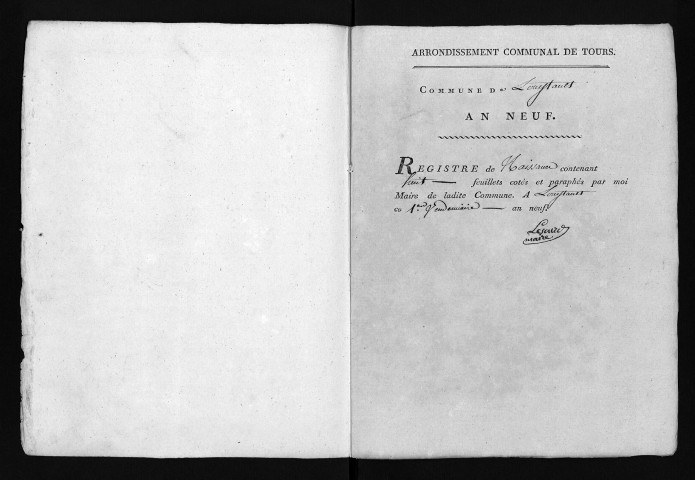 ARRONDISSEMENT COMMUNAL DE TOURS.
COMMUNE De Louestault
AN NEUF.
REGISTRE de Naissance contenant
huit feuillets cotés et paraphés par moi
Maire de ladite Commune. A Louestault
ce 1er Vendemiaire an neuf
maire